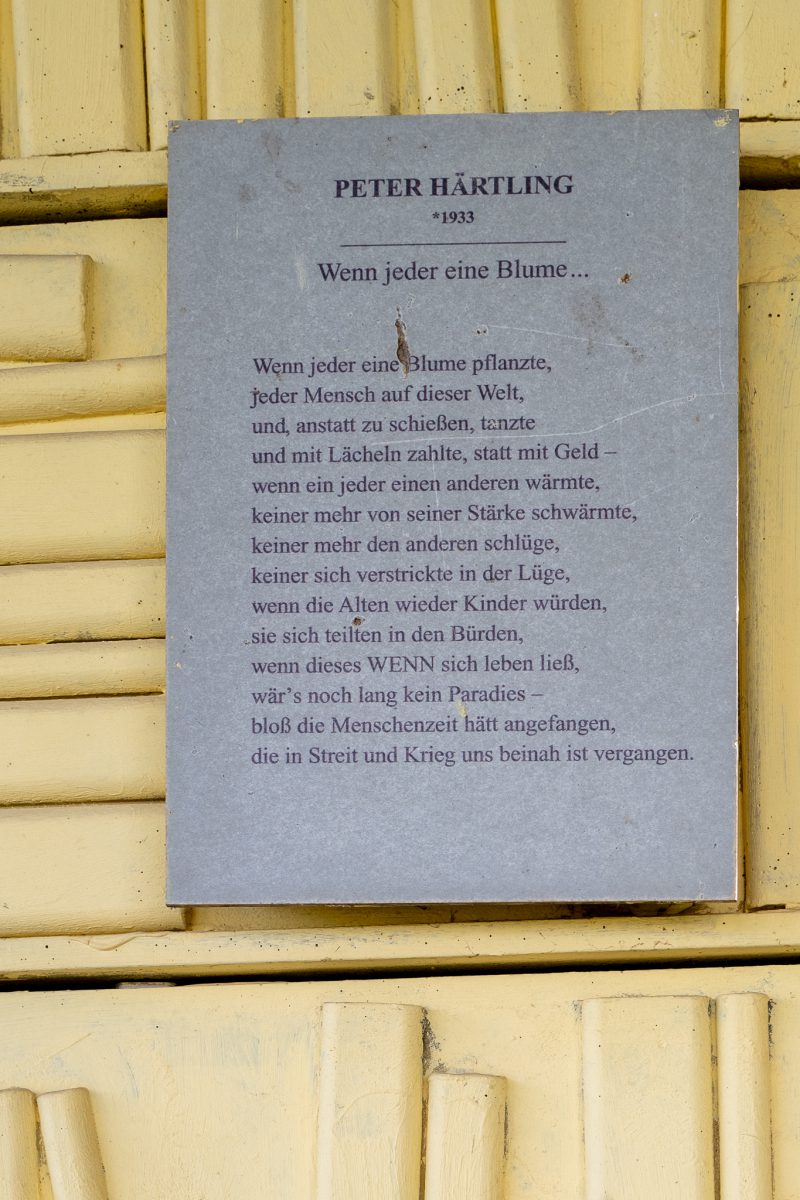 PETER HÄRTLING
*1933
Wenn jeder eine Blume...
Wenn jeder eine Blume pflanzte,
jeder Mensch auf dieser Welt,
und, anstatt zu schießen, tanzte
und mit Lächeln zahlte, statt mit Geld –
wenn ein jeder einen anderen wärmte,
keiner mehr von seiner Stärke schwärmte,
keiner mehr den anderen schlüge,
keiner sich verstrickte in der Lüge,
wenn die Alten wieder Kinder würden,
sie sich teilten in den Bürden,
wenn dieses WENN sich leben ließ,
wär's noch lang kein Paradies –
bloß die Menschenzeit hätt angefangen,
die in Streit und Krieg uns beinah ist vergangen.